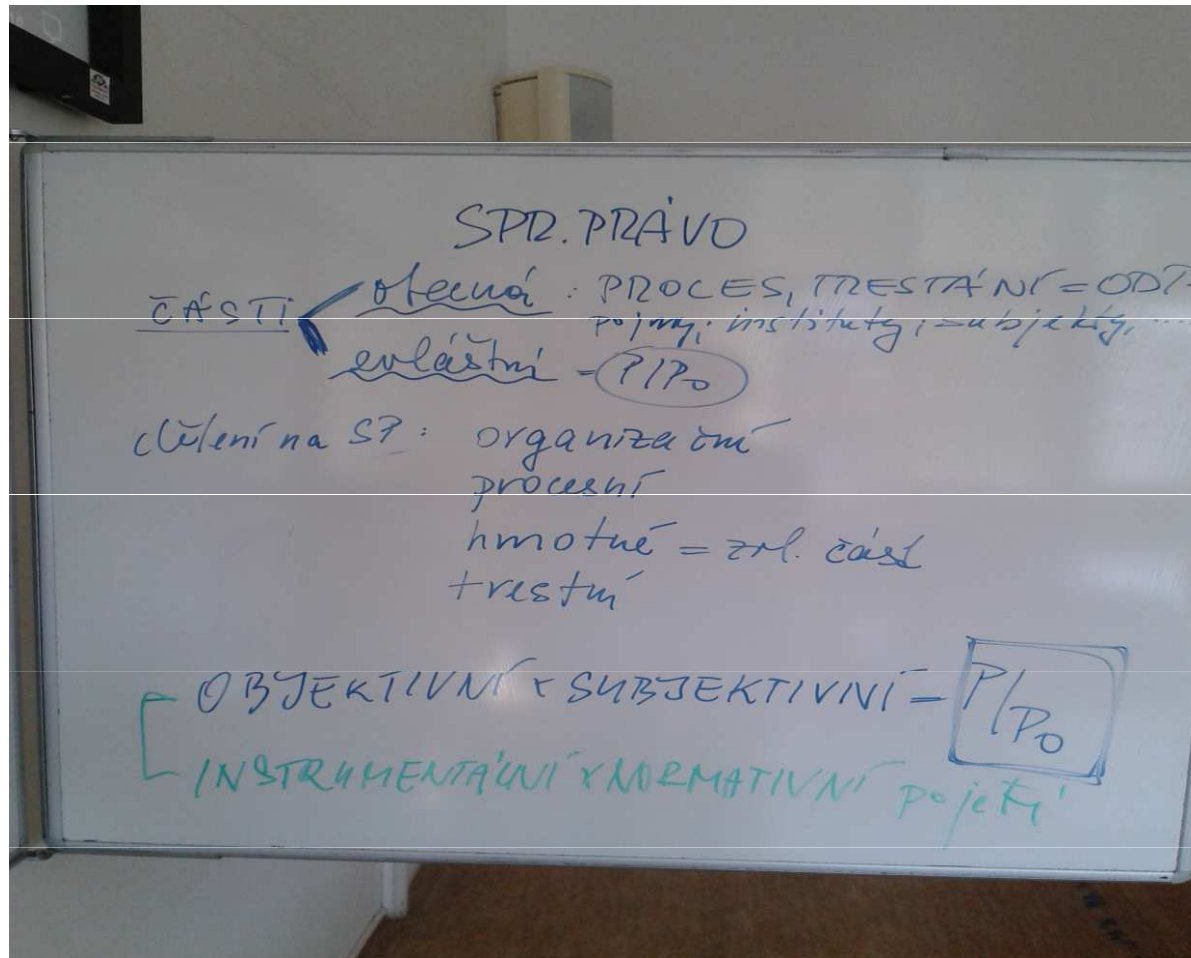 SPR. PRÁVO
ČÁSTI obecná : PROCES, TRESTÁNÍ = ODP.
pojmy, instituty, subjekty, ...
zvláštní = P/Po
dělení na SP : organizační
procesní
hmotné = zvl. část
trestní
OBJEKTIVNÍ x SUBJEKTIVNÍ = P/Po
INSTRUMENTÁLNÍ x NORMATIVNÍ pojetí